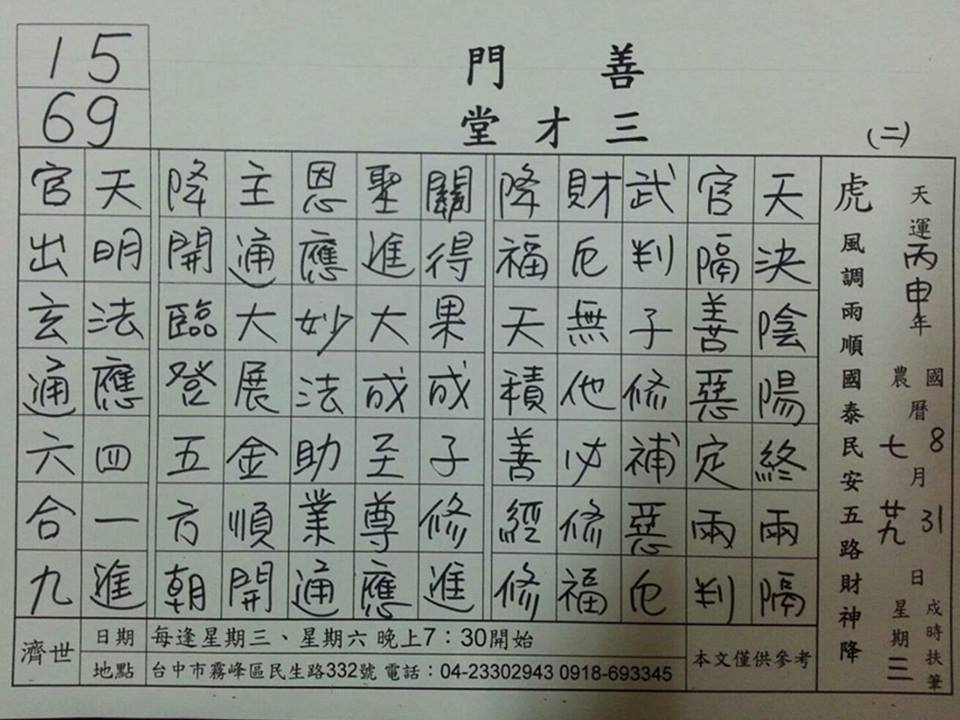 善門
三才堂
(二)
15
69
天運丙申年 國農曆 8七月 31廿九日 星期三
戌時扶筆
虎風調雨順國泰民安五路財神降
天決陰陽終兩隔
官隔善惡定兩判
武判子修補惡厄
財厄無他必修福
降福天積善經修
關得果成子修進
聖進大成至尊應
恩應妙法助業通
主通大展金順開
降開臨登五方朝
天明法應四一進
官出玄通六合九
濟世
日期 每逢星期三、星期六 晚上7:30開始
地點 台中市霧峰區民生路332號 電話:04-23302943 0918-693345
本文僅供參考